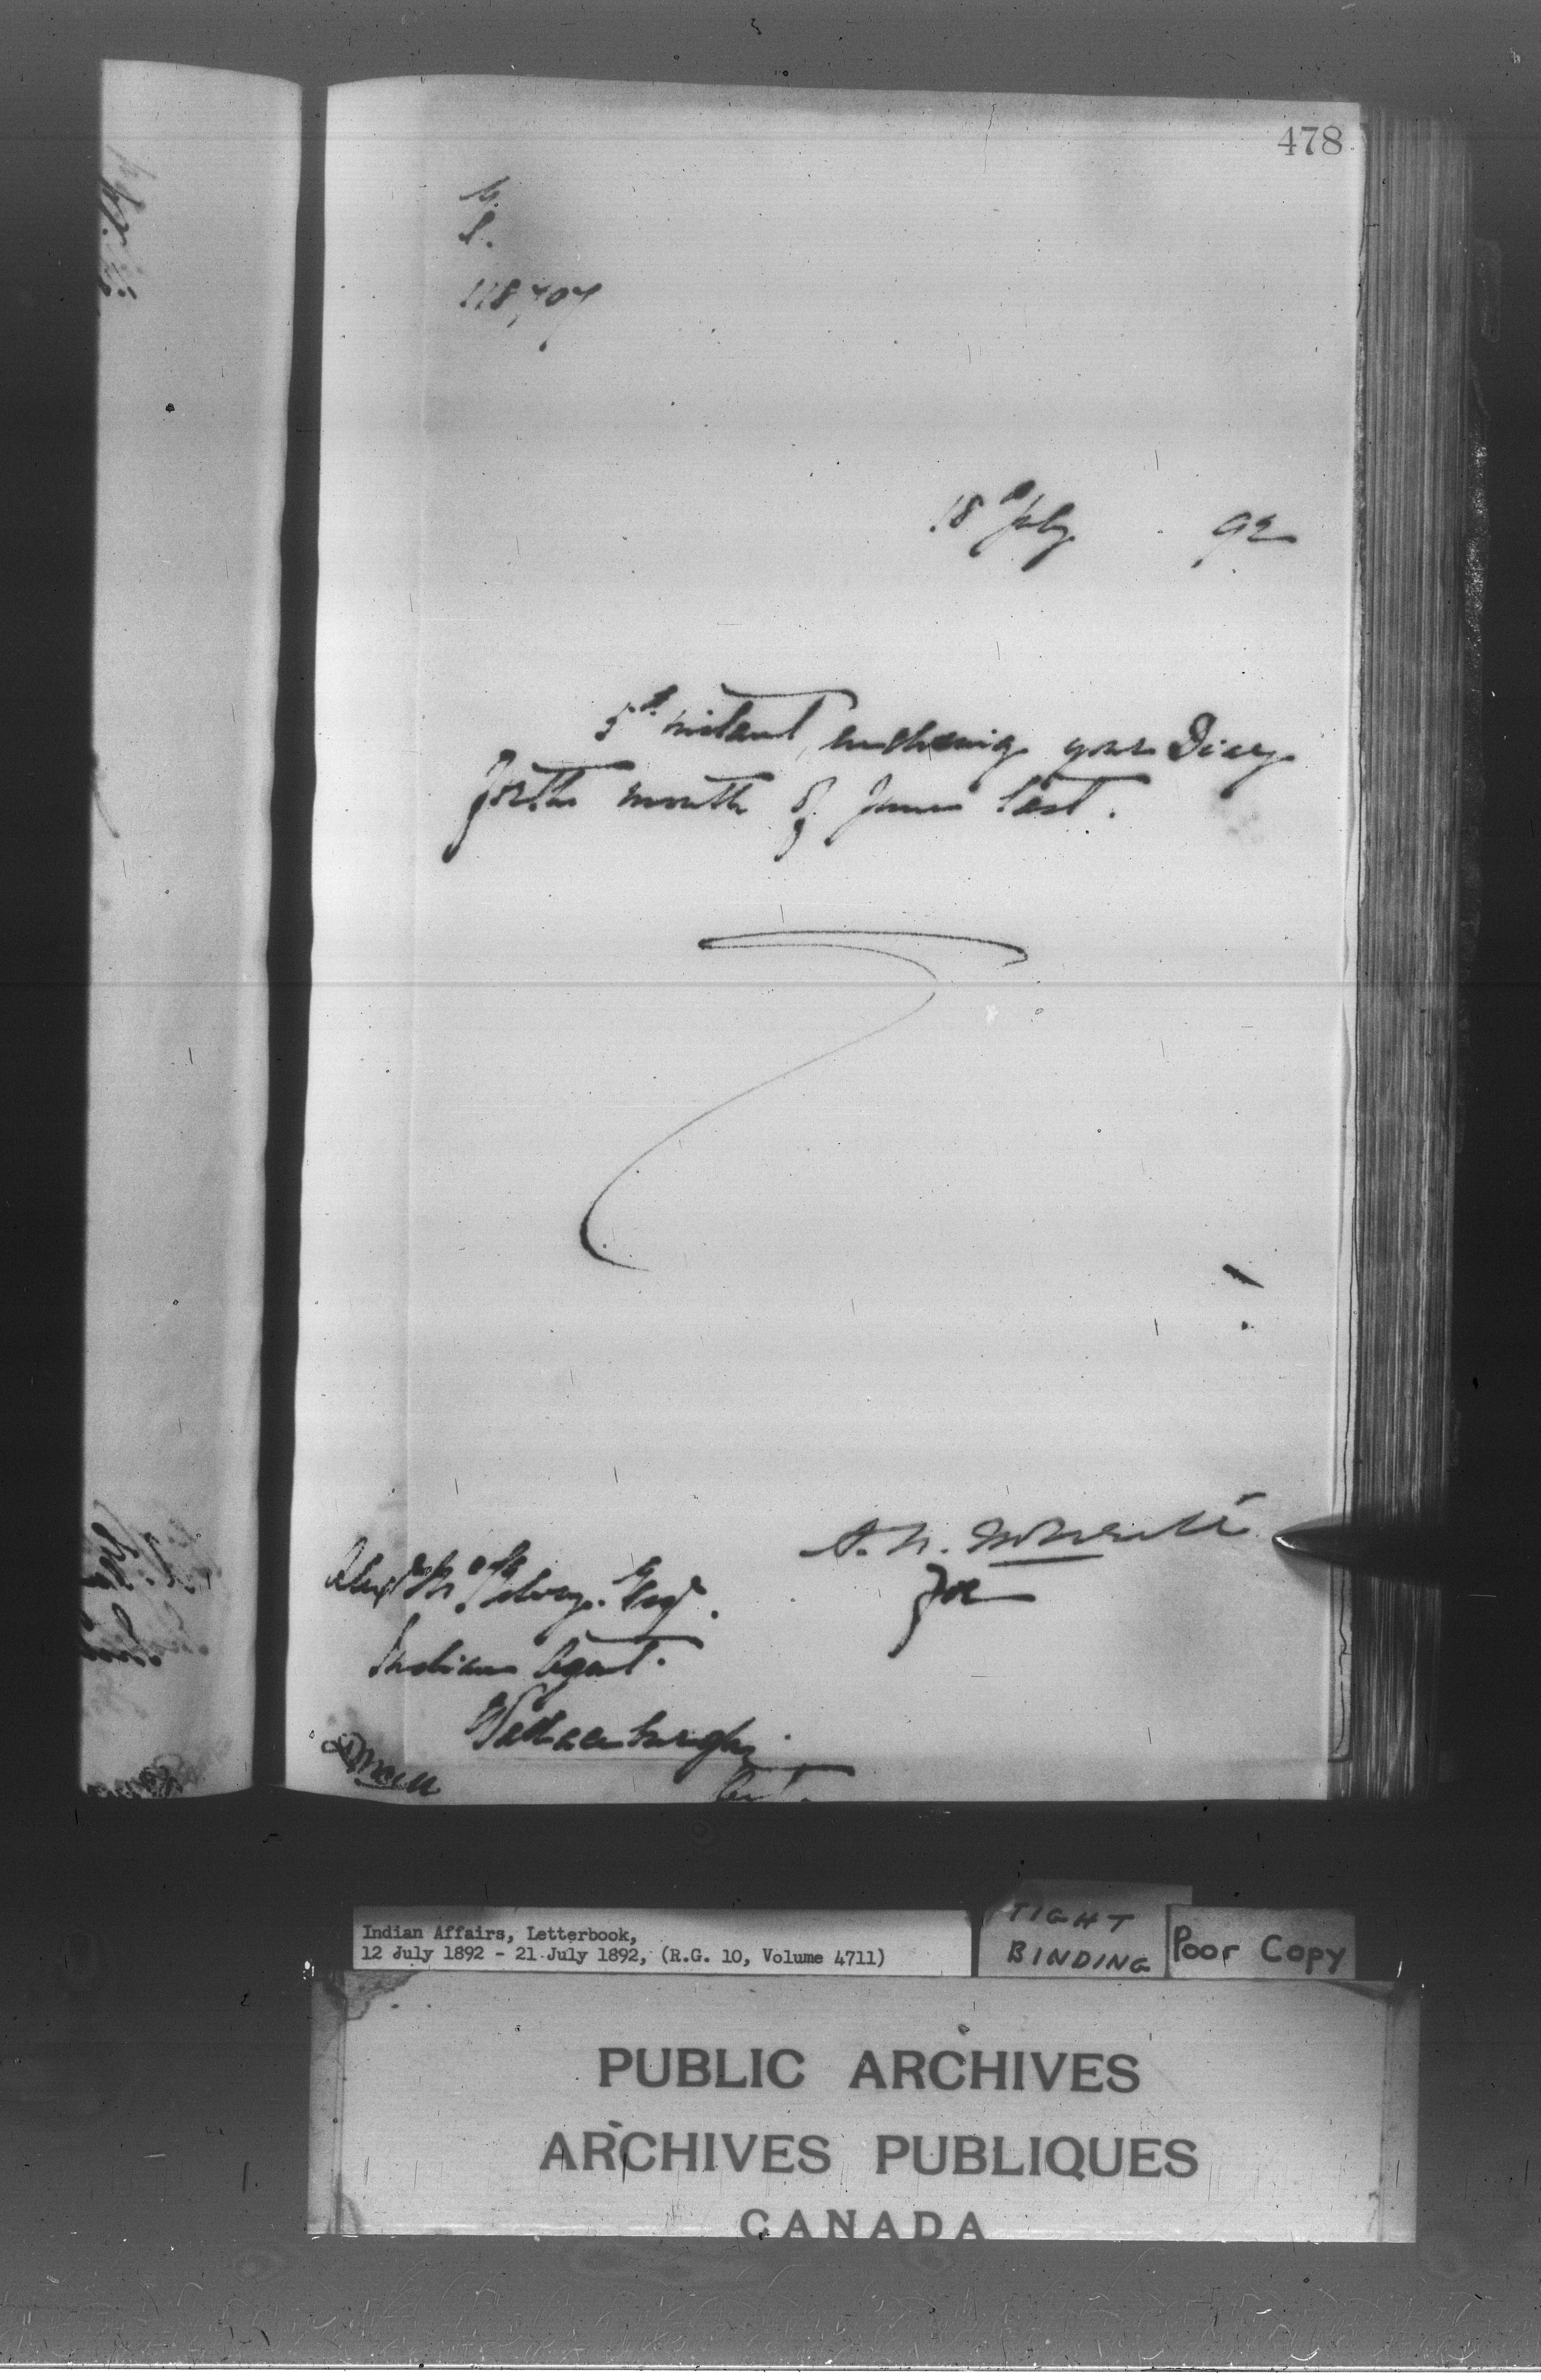 478
L.
118,707
18th July 92
5th instant, enclosing your Diary
for the month of June last.
A. N. McNeill
for
Alexr McKelvey. Esq.
Indian Agent.
Wallaceburgh
Ont.
Indian Affairs, Letterbook,
12 July 1892 - 21 July 1892, (R.G. 10, Volume 4711)
TIGHT
BINDING
Poor Copy
PUBLIC ARCHIVES
ARCHIVES PUBLIQUES
CANADA